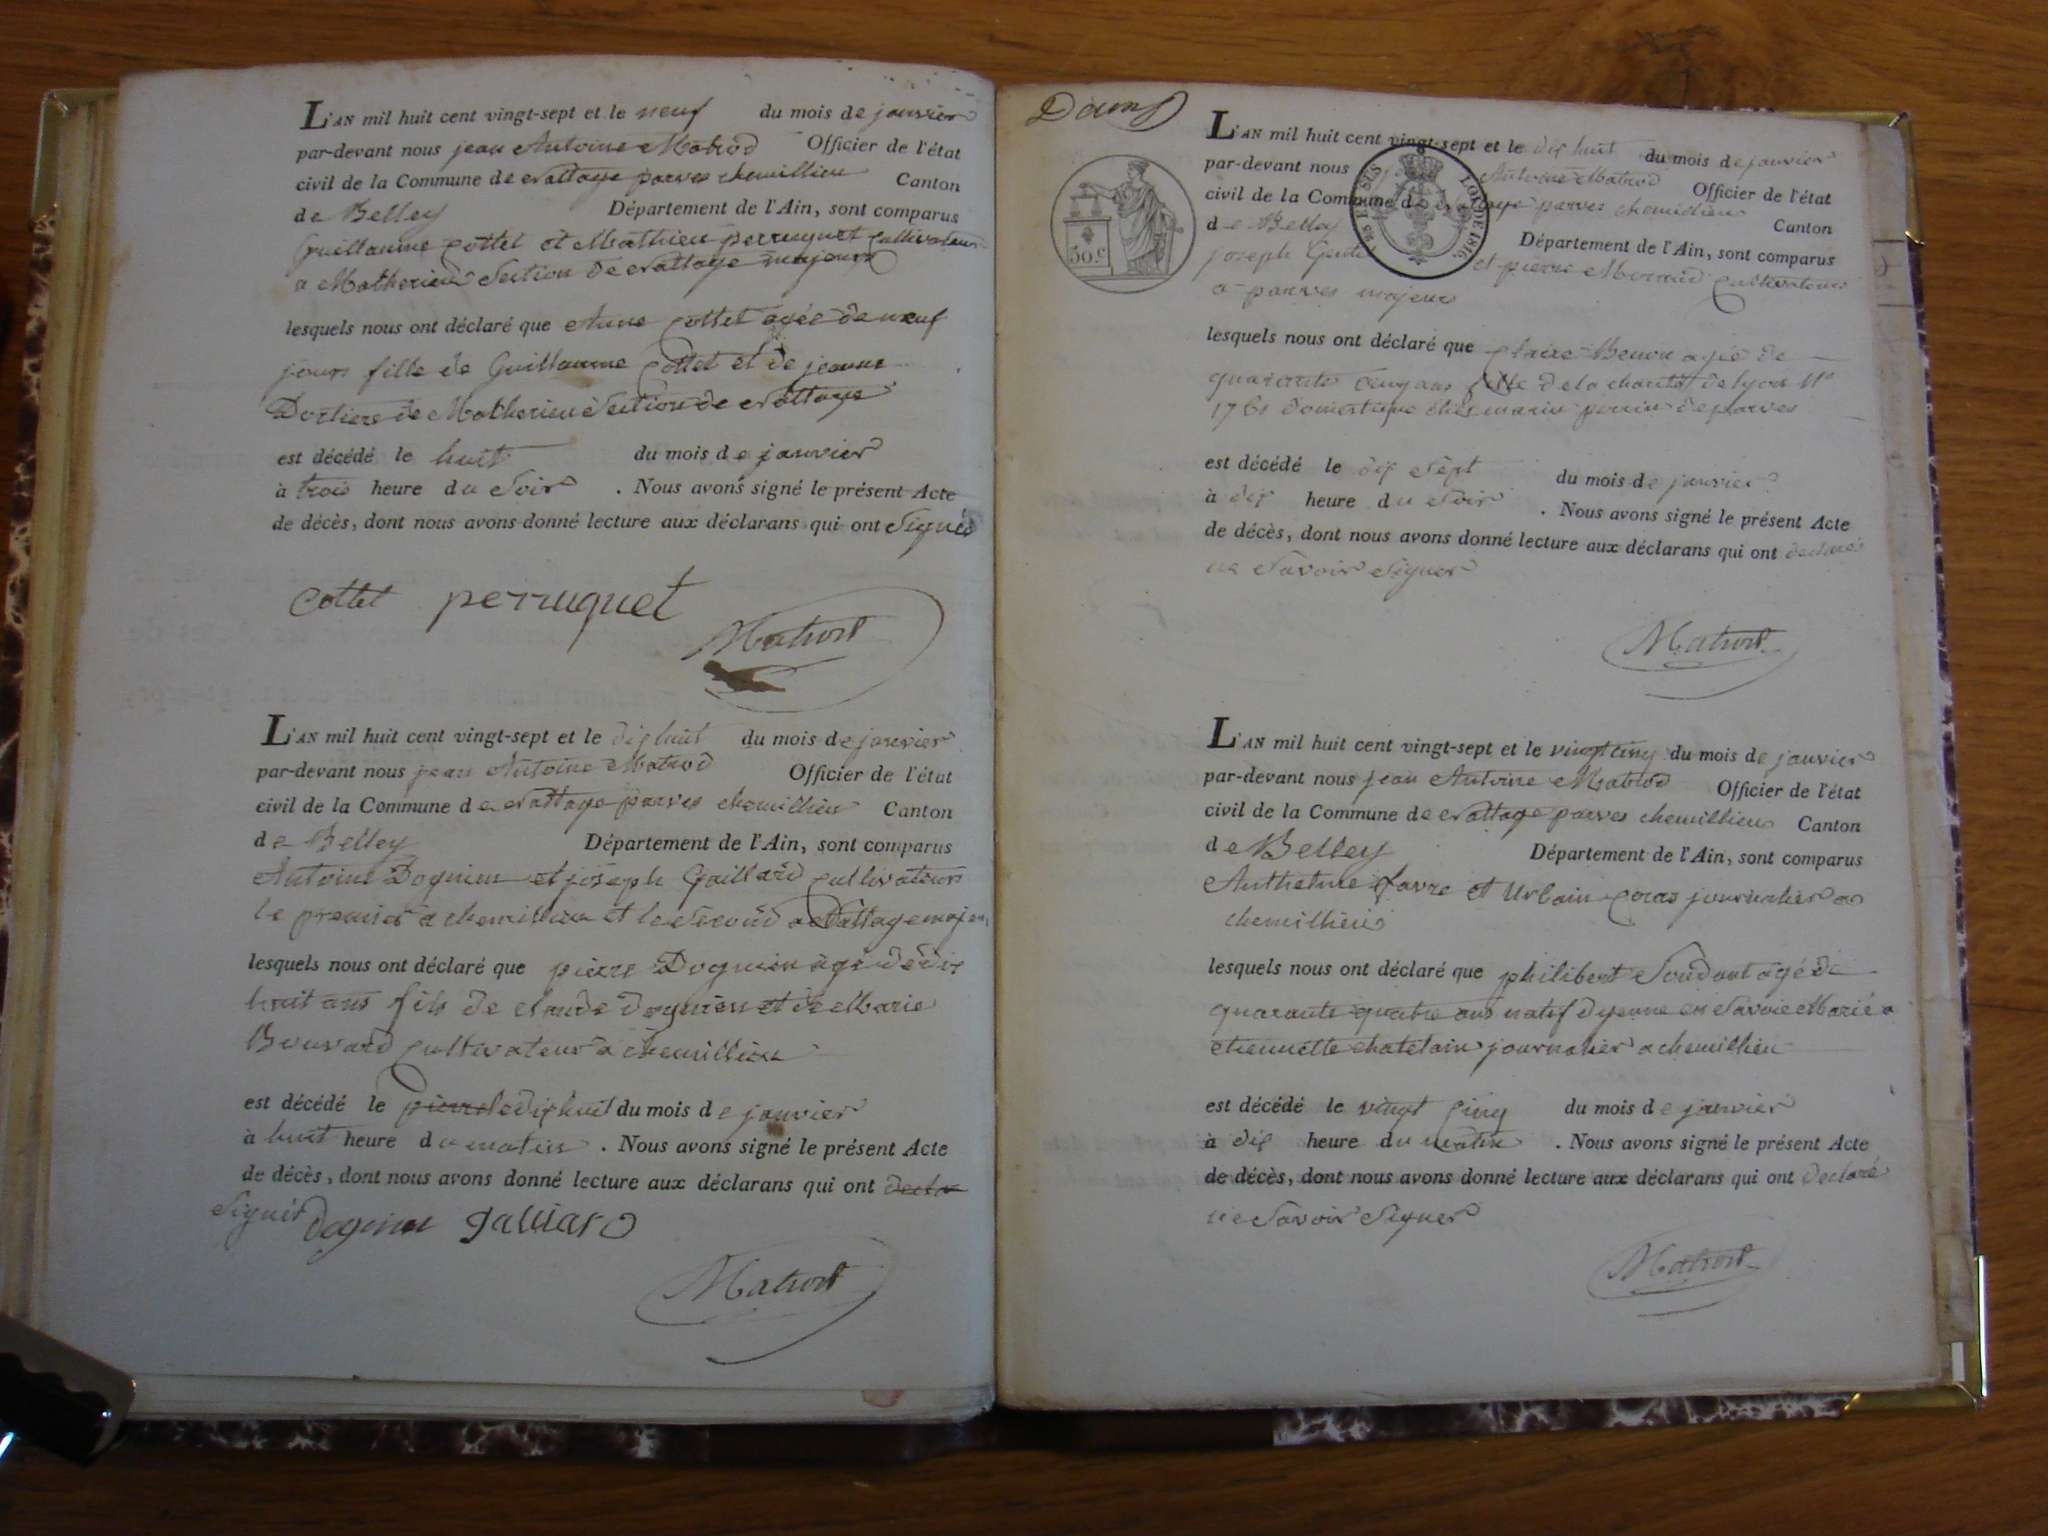 L'AN mil huit cent vingt-sept et le neuf du mois de janvier
par-devant nous jean Antoine Matrod Officier de l'état
civil de la Commune de nattage parves chemillieu Canton
de Belley Département de l'Ain, sont comparus
Guillaume Cottet et Mathieu perruquet cultivateurs
a Motherieu Section de nattage majeurs
lesquels nous ont déclaré que Anne Cottet agée de neuf
jours fille de Guillaume Cottet et de jeanne
Dortiers de Motherieu Section de nattage
est décédé le huit du mois de janvier
à trois heure du Soir . Nous avons signé le présent Acte
de décès, dont nous avons donné lecture aux déclarans qui ont Signés
Cottet perruquet
Matrod
L'AN mil huit cent vingt-sept et le dix huit du mois de janvier
par-devant nous jean Antoine Matrod Officier de l'état
civil de la Commune de nattage parves chemillieu Canton
de Belley Département de l'Ain, sont comparus
Antoine Dognien et joseph Gaillard cultivateurs
le premier a chemillieu et le Second a Nattage
lesquels nous ont déclaré que pierre Dognien âgé de dix
huit ans fils de claude dognien et de Marie
Bouvard cultivateur a chemillieu
est décédé le pierre le dix huit du mois de janvier
à huit heure du matin . Nous avons signé le présent Acte
de décès, dont nous avons donné lecture aux déclarans qui ont decla
Signés
dognien galliard
Matrod
Douns
L'AN mil huit cent vingt-sept et le dix huit du mois de janvier
par-devant nous Antoine Matrod Officier de l'état
civil de la Commune de nattage parves chemillieu Canton
de Belley Département de l'Ain, sont comparus
joseph et pierre cultivateurs
a parves majeurs
50.c
LOI DE 1816
lesquels nous ont déclaré que Claire Benon agée de
quarante cinq ans fille de la charité de lyon No
1761 domestique chez marin perrin de parves
est décédé le dix Sept du mois de janvier
à dix heure du Soir . Nous avons signé le présent Acte
de décès, dont nous avons donné lecture aux déclarans qui ont declarés
ne Savoir Signer
Matrod
L'AN mil huit cent vingt-sept et le vingt cinq du mois de janvier
par-devant nous jean Antoine Matrod Officier de l'état
civil de la Commune de nattage parves chemillieu Canton
de Belley Département de l'Ain, sont comparus
Anthelme favre et Urbain journalier a
chemillieu
lesquels nous ont déclaré que philibert Soudant âgé de
quarante quatre ans natif dyenne en Savoie Marié a
etiennette chatelain journalier a chemillieu
est décédé le vingt cinq du mois de janvier
à dix heure du matin . Nous avons signé le présent Acte
de décès, dont nous avons donné lecture aux déclarans qui ont declaré
ne Savoir Signer
Matrod